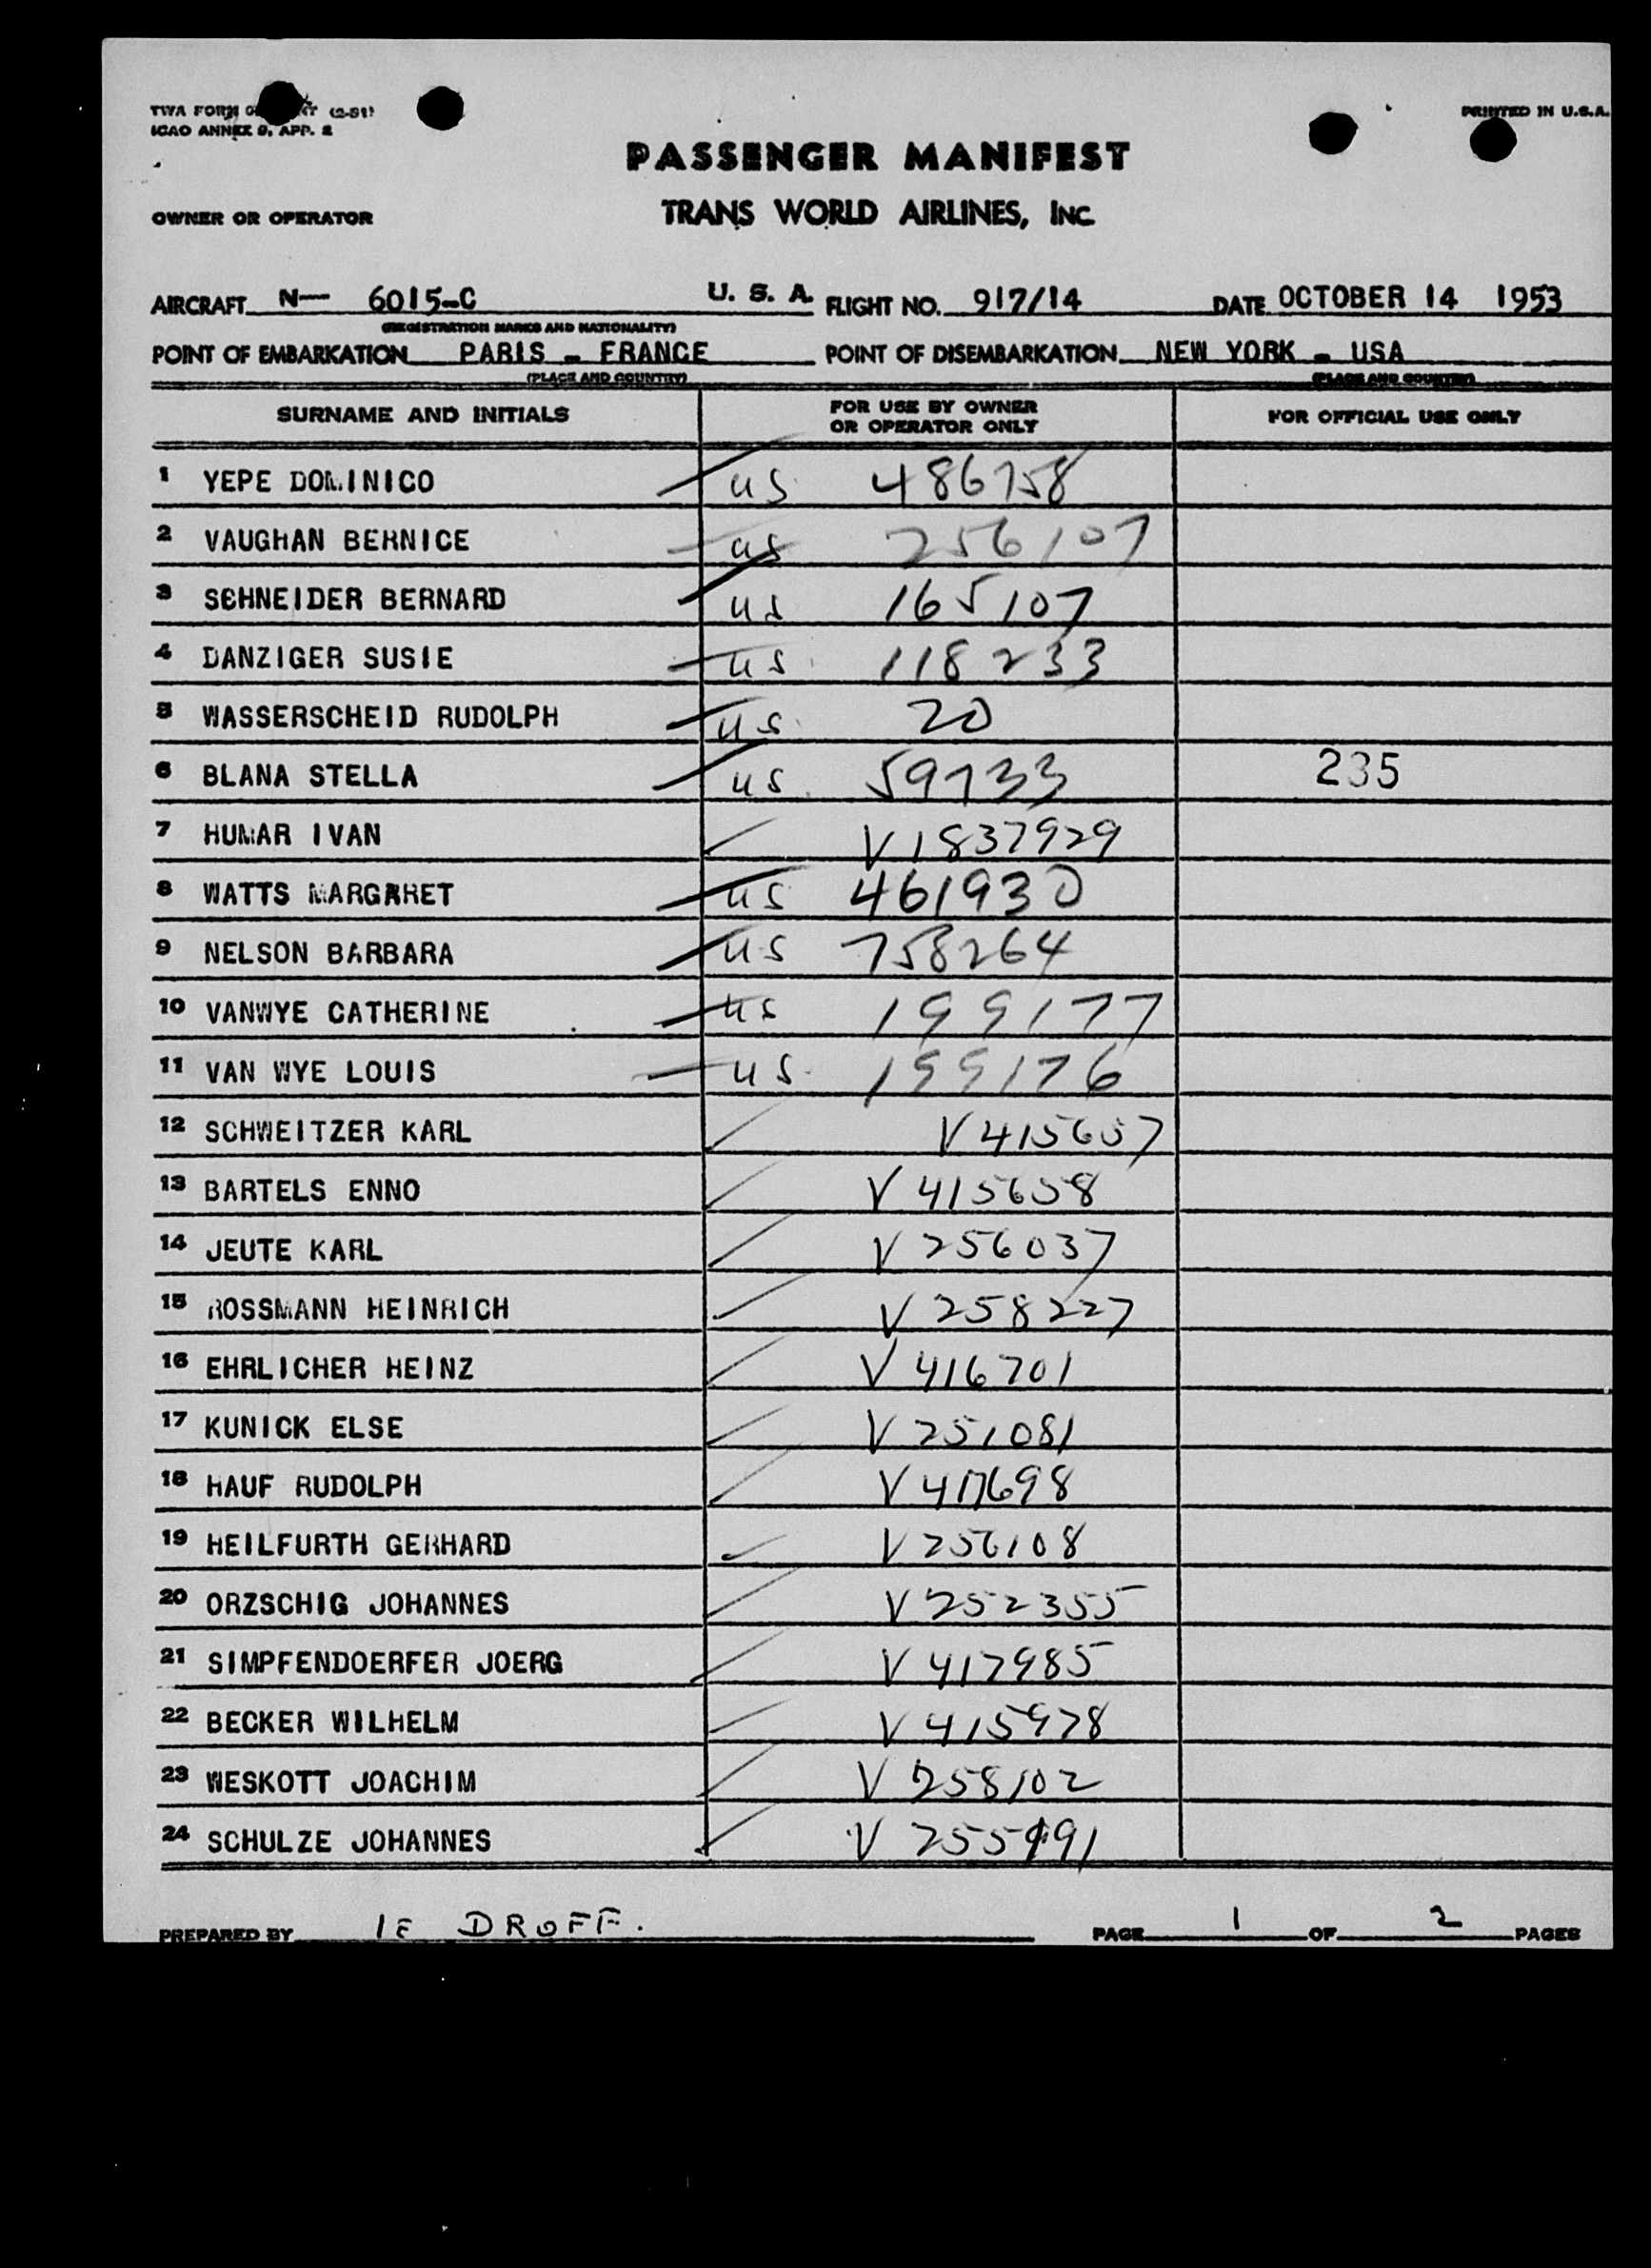 TWA FORM (2-51)
ICAO ANNEX 9, APP. 2
PRINTED IN U.S.A.
PASSENGER MANIFEST
OWNER OR OPERATOR TRANS WORLD AIRLINES, INC
AIRCRAFT N— 6015-C U. S. A. FLIGHT NO. 917/14 DATE OCTOBER 14 1953
(REGISTRATION MARKS AND NATIONALITY)
POINT OF EMBARKATION PARIS - FRANCE POINT OF DISEMBARKATION NEW YORK - USA
(PLACE AND COUNTRY) (PLACE AND COUNTRY)
SURNAME AND INITIALS FOR USE BY OWNER OR OPERATOR ONLY FOR OFFICIAL USE ONLY
1 YEPE DOMINICO US 486758
2 VAUGHAN BERNICE US 256107
3 SCHNEIDER BERNARD US 165107
4 DANZIGER SUSIE US 118233
5 WASSERSCHEID RUDOLPH US 20
6 BLANA STELLA US 59733 235
7 HUMAR IVAN V 1837929
8 WATTS MARGARET US 461930
9 NELSON BARBARA US 758264
10 VANWYE CATHERINE US 199177
11 VAN WYE LOUIS US 199176
12 SCHWEITZER KARL V 415657
13 BARTELS ENNO V 415658
14 JEUTE KARL V 256037
15 ROSSMANN HEINRICH V 258227
16 EHRLICHER HEINZ V 416701
17 KUNICK ELSE V 251081
18 HAUF RUDOLPH V 417698
19 HEILFURTH GERHARD V 256108
20 ORZSCHIG JOHANNES V 252355
21 SIMPFENDOERFER JOERG V 417985
22 BECKER WILHELM V 415978
23 WESKOTT JOACHIM V 258102
24 SCHULZE JOHANNES V
PREPARED BY IE DROFF. PAGE 1 OF 2 PAGES